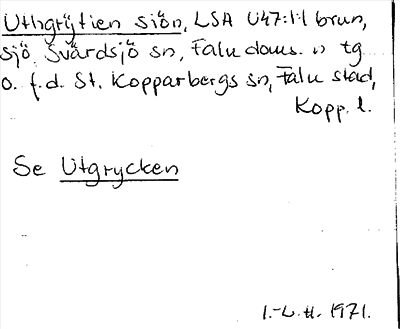 Uthgrÿtien siön, LSA U47:1:1 brun,
sjö. Svärdsjö sn, Falu doms. n tg
o. f.d. St. Kopparbergs sn, Falu stad,
Kopp. l.
Se Utgrycken
I.-L. H. 1971.